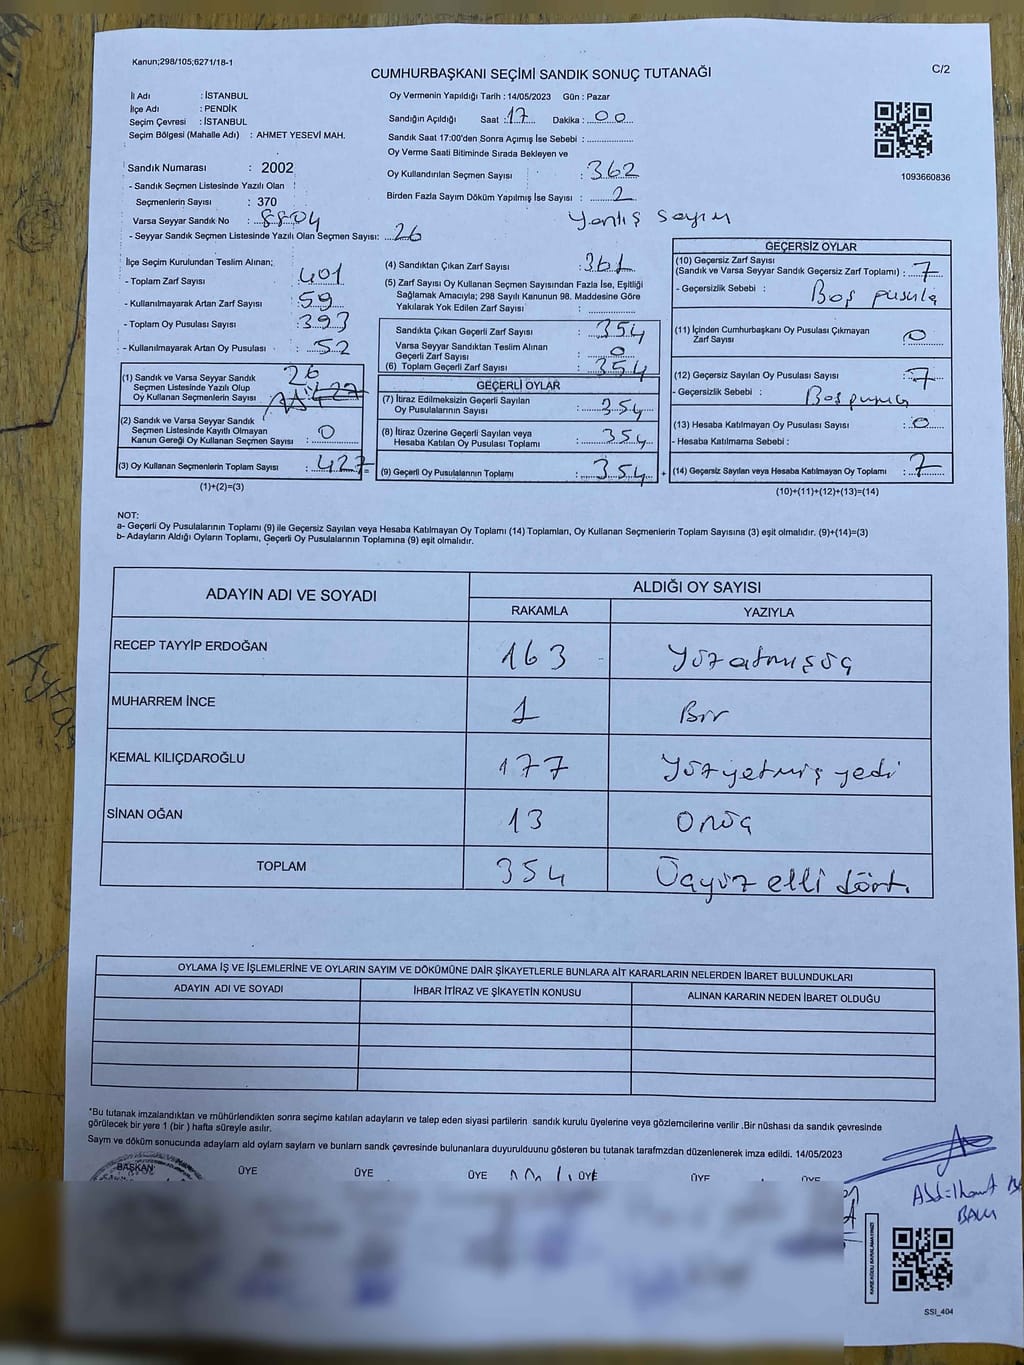 Kanun;298/105;6271/18-1
CUMHURBAŞKANI SEÇİMİ SANDIK SONUÇ TUTANAĞI
C/2
İli Adı : İSTANBUL
İlçe Adı : PENDİK
Seçim Çevresi : İSTANBUL
Seçim Bölgesi (Mahalle Adı) : AHMET YESEVİ MAH.
Oy Vermenin Yapıldığı Tarih : 14/05/2023 Gün : Pazar
Sandığın Açıldığı Saat : 17 Dakika : 00
Sandık Saat 17:00'den Sonra Açımış İse Sebebi :
Oy Verme Saati Bitiminde Sırada Bekleyen ve
Oy Kullandırılan Seçmen Sayısı : 362
Birden Fazla Sayım Döküm Yapılmış İse Sayısı : 2
Yanlış sayım
1093660836
Sandık Numarası : 2002
- Sandık Seçmen Listesinde Yazılı Olan
Seçmenlerin Sayısı : 370
Varsa Seyyar Sandık No : 8804
- Seyyar Sandık Seçmen Listesinde Yazılı Olan Seçmen Sayısı: 26
İlçe Seçim Kurulundan Teslim Alınan;
- Toplam Zarf Sayısı : 401
- Kullanılmayarak Artan Zarf Sayısı : 59
- Toplam Oy Pusulası Sayısı : 393
- Kullanılmayarak Artan Oy Pusulası : 52
(1) Sandık ve Varsa Seyyar Sandık
Seçmen Listesinde Yazılı Olup
Oy Kullanan Seçmenlerin Sayısı : 26
427
(2) Sandık ve Varsa Seyyar Sandık
Seçmen Listesinde Kayıtlı Olmayan
Kanun Gereği Oy Kullanan Seçmen Sayısı : 0
(3) Oy Kullanan Seçmenlerin Toplam Sayısı : 427 =
(1)+(2)=(3)
(4) Sandıktan Çıkan Zarf Sayısı : 361
(5) Zarf Sayısı Oy Kullanan Seçmen Sayısından Fazla İse, Eşitliği
Sağlamak Amacıyla; 298 Sayılı Kanunun 98. Maddesine Göre
Yakılarak Yok Edilen Zarf Sayısı :
Sandıkta Çıkan Geçerli Zarf Sayısı : 354
Varsa Seyyar Sandıktan Teslim Alınan
Geçerli Zarf Sayısı : 0
(6) Toplam Geçerli Zarf Sayısı : 354
GEÇERLİ OYLAR
(7) İtiraz Edilmeksizin Geçerli Sayılan
Oy Pusulalarının Sayısı : 354
(8) İtiraz Üzerine Geçerli Sayılan veya
Hesaba Katılan Oy Pusulası Toplamı : 354
(9) Geçerli Oy Pusulalarının Toplamı : 354 +
GEÇERSİZ OYLAR
(10) Geçersiz Zarf Sayısı
(Sandık ve Varsa Seyyar Sandık Geçersiz Zarf Toplamı) : 7
- Geçersizlik Sebebi : Boş pusula
(11) İçinden Cumhurbaşkanı Oy Pusulası Çıkmayan
Zarf Sayısı : 0
(12) Geçersiz Sayılan Oy Pusulası Sayısı : 7
- Geçersizlik Sebebi : Boş pusula
(13) Hesaba Katılmayan Oy Pusulası Sayısı : 0
- Hesaba Katılmama Sebebi :
(14) Geçersiz Sayılan veya Hesaba Katılmayan Oy Toplamı : 7
(10)+(11)+(12)+(13)=(14)
NOT:
a- Geçerli Oy Pusulalarının Toplamı (9) ile Geçersiz Sayılan veya Hesaba Katılmayan Oy Toplamı (14) Toplamları, Oy Kullanan Seçmenlerin Toplam Sayısına (3) eşit olmalıdır. (9)+(14)=(3)
b- Adayların Aldığı Oyların Toplamı, Geçerli Oy Pusulalarının Toplamına (9) eşit olmalıdır.
ADAYIN ADI VE SOYADI
ALDIĞI OY SAYISI
RAKAMLA YAZIYLA
RECEP TAYYİP ERDOĞAN 163 Yüzatmışüç
MUHARREM İNCE 1 Bir
KEMAL KILIÇDAROĞLU 177 Yüzyetmiş yedi
SİNAN OĞAN 13 Onüç
TOPLAM 354 Üçyüz elli dört.
OYLAMA İŞ VE İŞLEMLERİNE VE OYLARIN SAYIM VE DÖKÜMÜNE DAİR ŞİKAYETLERLE BUNLARA AİT KARARLARIN NELERDEN İBARET BULUNDUKLARI
ADAYIN ADI VE SOYADI İHBAR İTİRAZ VE ŞİKAYETİN KONUSU ALINAN KARARIN NEDEN İBARET OLDUĞU
*Bu tutanak imzalandıktan ve mühürlendikten sonra seçime katılan adayların ve talep eden siyasi partilerin sandık kurulu üyelerine veya gözlemcilerine verilir .Bir nüshası da sandık çevresinde
görülecek bir yere 1 (bir ) hafta süreyle asılır.
Sayım ve döküm sonucunda adayların ald oyların sayların ve bunların sandk çevresinde bulunanlara duyurulduunu gösteren bu tutanak tarafmzdan düzenlenerek imza edildi. 14/05/2023
BAŞKAN ÜYE ÜYE ÜYE ÜYE ÜYE ÜYE
SSI_404